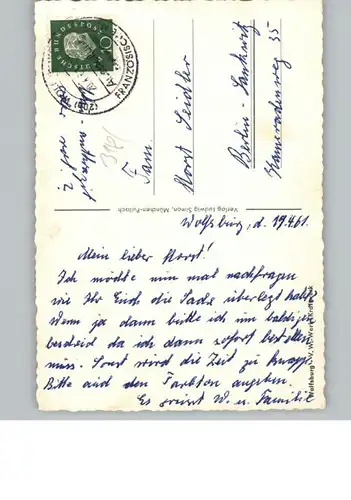 DEUTSCHE BUNDESPOST
10
FRANZÖSISC
Fam.
Horst Seidler
Berlin - Lankwitz
Kameradenweg 35
Verlag Ludwig Simon, München-Pullach
Wolfsburg, d. 19.4.61.
Mein lieber Horst!
Ich möchte nun mal nachfragen
wie Ihr Euch die Sache überlegt habt.
Wenn ja dann bitte ich um baldigen
bescheid da ich dann sofort bestellen
muss. Sonst wird die Zeit zu knapp.
Bitte auch den Farbton angeben.
Es grüsst W. u. Familie